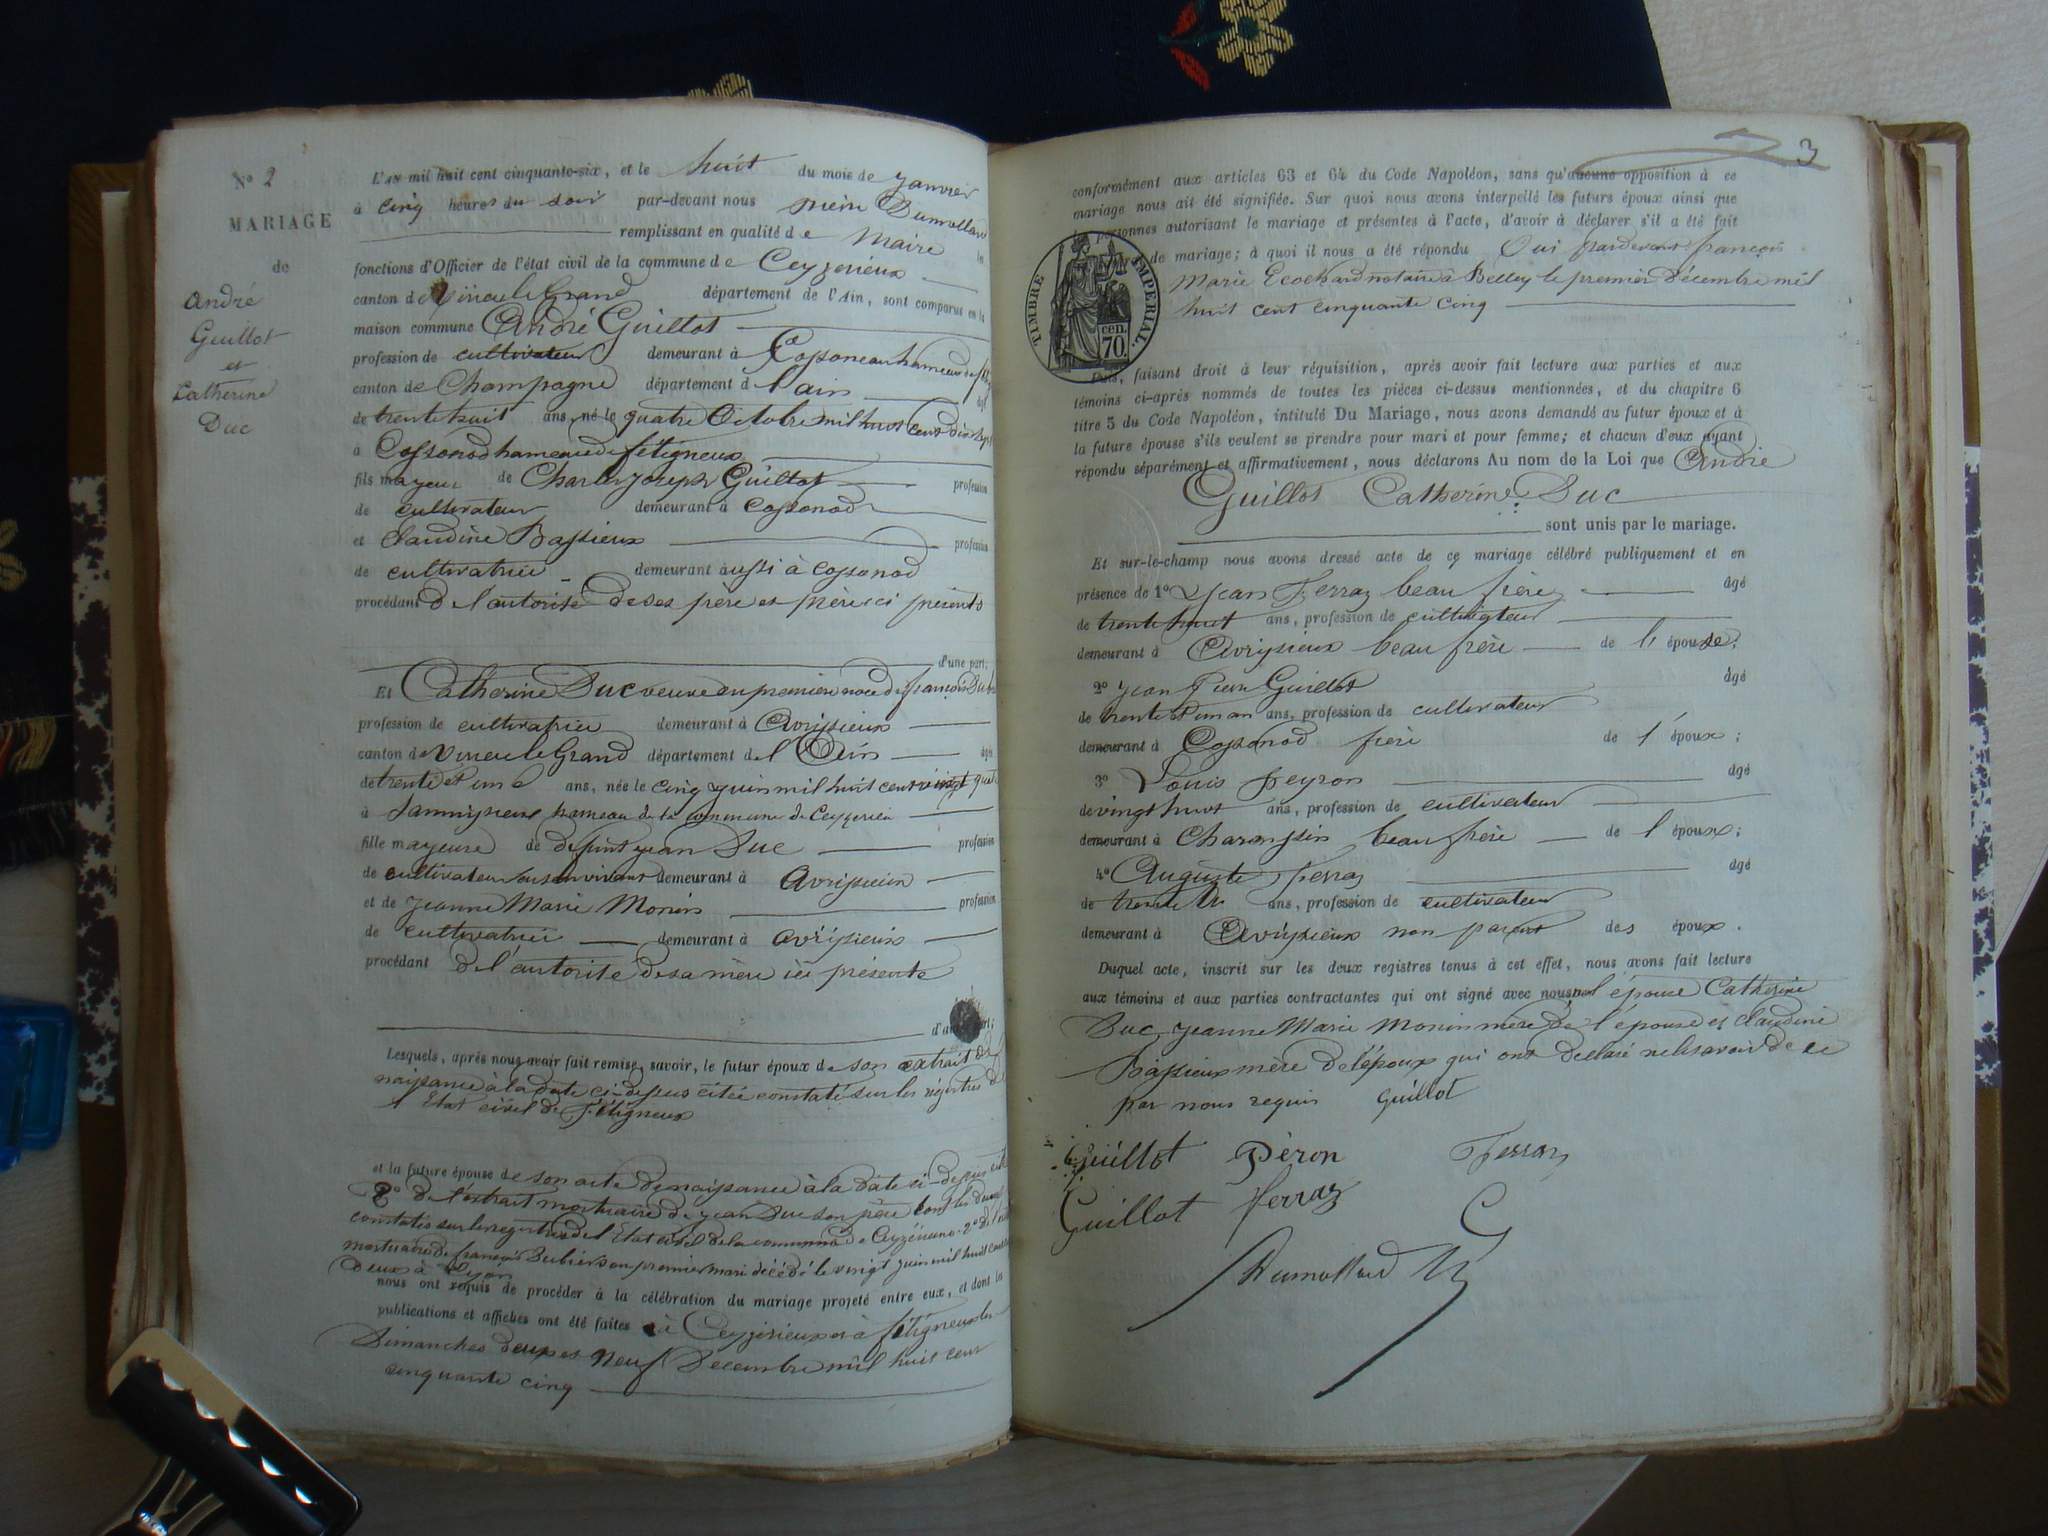 No 2
MARIAGE
de
André
Guillot
et
Catherine
Duc
L'AN mil huit cent cinquante-six, et le huit du mois de janvier
à cinq heures du soir par-devant nous pierre Dumollard
remplissant en qualité de Maire le
fonctions d'Officier de l'état civil de la commune de Ceyzerieux
canton de virieu le Grand département de l'Ain, sont comparus en la
maison commune André Guillot
profession de cultivateur demeurant à Cossonod hameau de
canton de Champagne département de l'ain âgé
de trente huit ans, né le quatre Octobre mil huit cent dix sept
à Cossonod hameau de fitigneux
fils mayeur de Charles joseph Guillot profession
de cultivateur demeurant à Cossonod
et Claudine Bassieux profession
de cultivatrice demeurant aussi à Cossonod
procédant de l'autorité de ses père et mère ici présents
d'une part;
Et Catherine Duc veuve en premiere noce de françois
profession de cultivatrice demeurant à Avrissieux
canton de virieu le Grand département de l'Ain âgée
de trente et une ans, née le cinq juin mil huit cent vingt quatre
à hameau de la commune de Ceyzerieu
fille mayeure de défunt jean Duc profession
de cultivateur en son vivant demeurant à avrissieux
et de jeanne Marie Monin profession
de cultivatrice demeurant à avrissieux
procédant de l'autorité de sa mère ici présente
d'autre part;
Lesquels, après nous avoir fait remise, savoir, le futur époux de son extrait de
naissance à la date ci-dessus citée constaté sur les régistres de
l'Etat civil de fitigneux
et la future épouse de son acte de naissance à la date ci-dessus citée
2º de l'extrait mortuaire de jean Duc son père tous les deux
constatés sur les registres de l'Etat civil de la commune de Ceyzérieux 2º de l'extrait
mortuaire de françois son premier mari décédé le vingt juin mil huit cent
deux à Lyon
nous ont requis de procéder à la célébration du mariage projeté entre eux, et dont les
publications et affiches ont été faites à Ceyzérieux et à fitigneux les
Dimanches deux et neuf Décembre mil huit cent
cinquante cinq
3
conformément aux articles 63 et 64 du Code Napoléon, sans qu'aucune opposition à ce
mariage nous ait été signifiée. Sur quoi nous avons interpellé les futurs époux ainsi que
personnes autorisant le mariage et présentes à l'acte, d'avoir à déclarer s'il a été fait
de mariage; à quoi il nous a été répondu Oui pardevant françois
Marie Ecochard notaire à Belley le premier Décembre mil
huit cent cinquante cinq
TIMBRE IMPERIAL.
70 cen.
Puis, faisant droit à leur réquisition, après avoir fait lecture aux parties et aux
témoins ci-après nommés de toutes les pièces ci-dessus mentionnées, et du chapitre 6
titre 5 du Code Napoléon, intitulé Du Mariage, nous avons demandé au futur époux et à
la future épouse s'ils veulent se prendre pour mari et pour femme; et chacun d'eux ayant
répondu séparément et affirmativement, nous déclarons Au nom de la Loi que André
Guillot Catherine Duc
sont unis par le mariage.
Et sur-le-champ nous avons dressé acte de ce mariage célébré publiquement et en
présence de 1º jean Ferraz beau frère âgé
de trente huit ans, profession de cultivateur
demeurant à Avrissieux beau frère de l'épouse;
2º jean Pierre Guillot âgé
de trente et un an ans, profession de cultivateur
demeurant à Cossonod frère de l'époux;
3º Louis peyron âgé
de vingt huit ans, profession de cultivateur
demeurant à Charansin beau frère de l'époux;
4º Auguste ferraz âgé
de trente ans, profession de cultivateur
demeurant à Avrissieux non parent des époux.
Duquel acte, inscrit sur les deux registres tenus à cet effet, nous avons fait lecture
aux témoins et aux parties contractantes qui ont signé avec nous non l'épouse Catherine
Duc, jeanne Marie Monin mère de l'épouse et Claudine
Bassieux mère de l'époux qui ont déclaré ne le savoir de ce
par nous requis Guillot
Guillot Péron Ferraz
Guillot ferraz
Dumollard